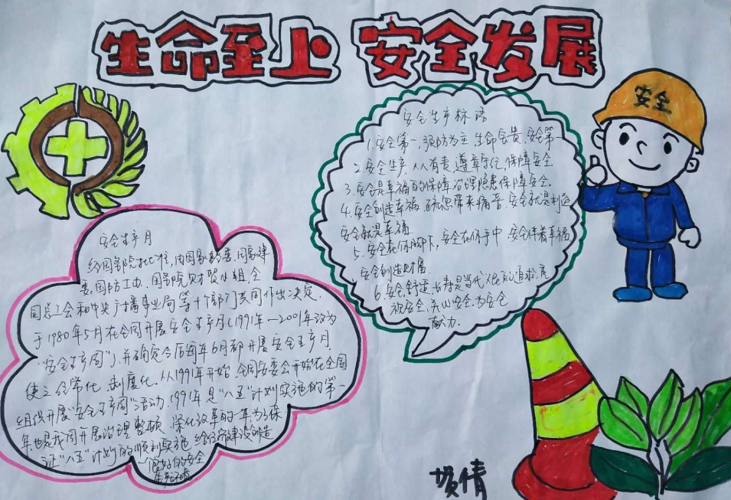 生命至上 安全发展
安全
安全生产标语
1.安全第一,预防为主,生命宝贵,安全第一
2.安全生产,人人有责,遵章守纪,保障安全
3.安全是幸福的保障,治理隐患保障安全.
4.安全创造幸福,疏忽带来痛苦,安全就是利益
安全就是幸福
5.安全在你脚下,安全在你手中,安全伴着幸福
安全创造财富
献力.
安全生产月
经国务院批准,由国家经委、国家建
委、国防工办、国务院财贸小组、全
国总工会和中央广播事业局等十个部门共同作出决定.
于1980年5月在全国开展安全生产月(1991年—2001年改为
"安全生产周"),并确定今后每年6月都开展安全生产月
使之经常化、制度化.从1991年开始,全国安委会开始在全国
组织开展"安全生产周"活动.1991年是"八五"计划实施的第一
年,也是我国开展治理整顿、深化改革的一年,为了保
证"八五"计划的顺利实施,
良好的安全
倩